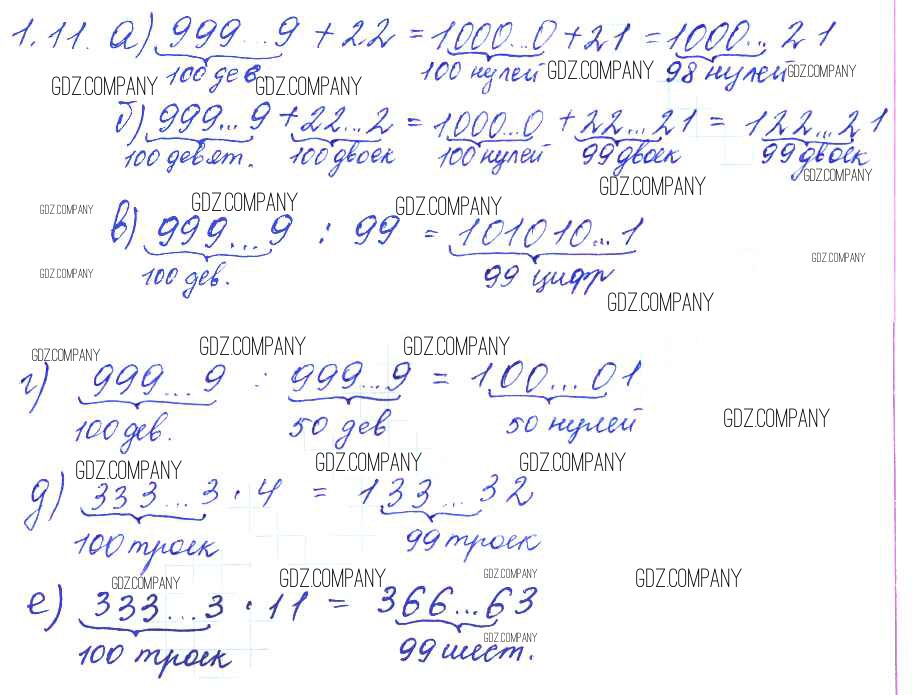 1.11. а) 999...9 + 22 = 1000...0 + 21 = 1000... 21
100 дев. 100 нулей 98 нулей
GDZ.COMPANY GDZ.COMPANY GDZ.COMPANY GDZ.COMPANY
б) 999...9 + 22...2 = 1000...0 + 22...21 = 122...21
100 девят. 100 двоек 100 нулей 99 двоек 99 двоек
GDZ.COMPANY GDZ.COMPANY
GDZ.COMPANY GDZ.COMPANY GDZ.COMPANY
в) 999...9 : 99 = 101010...1
GDZ.COMPANY
100 дев. 99 цифр
GDZ.COMPANY
GDZ.COMPANY
GDZ.COMPANY GDZ.COMPANY GDZ.COMPANY
г) 999...9 : 999...9 = 100...01
100 дев. 50 дев 50 нулей
GDZ.COMPANY
GDZ.COMPANY GDZ.COMPANY GDZ.COMPANY
д) 333...3 · 4 = 133...32
100 троек 99 троек
GDZ.COMPANY GDZ.COMPANY GDZ.COMPANY GDZ.COMPANY
е) 333...3 · 11 = 366...63
GDZ.COMPANY
100 троек 99 шест.